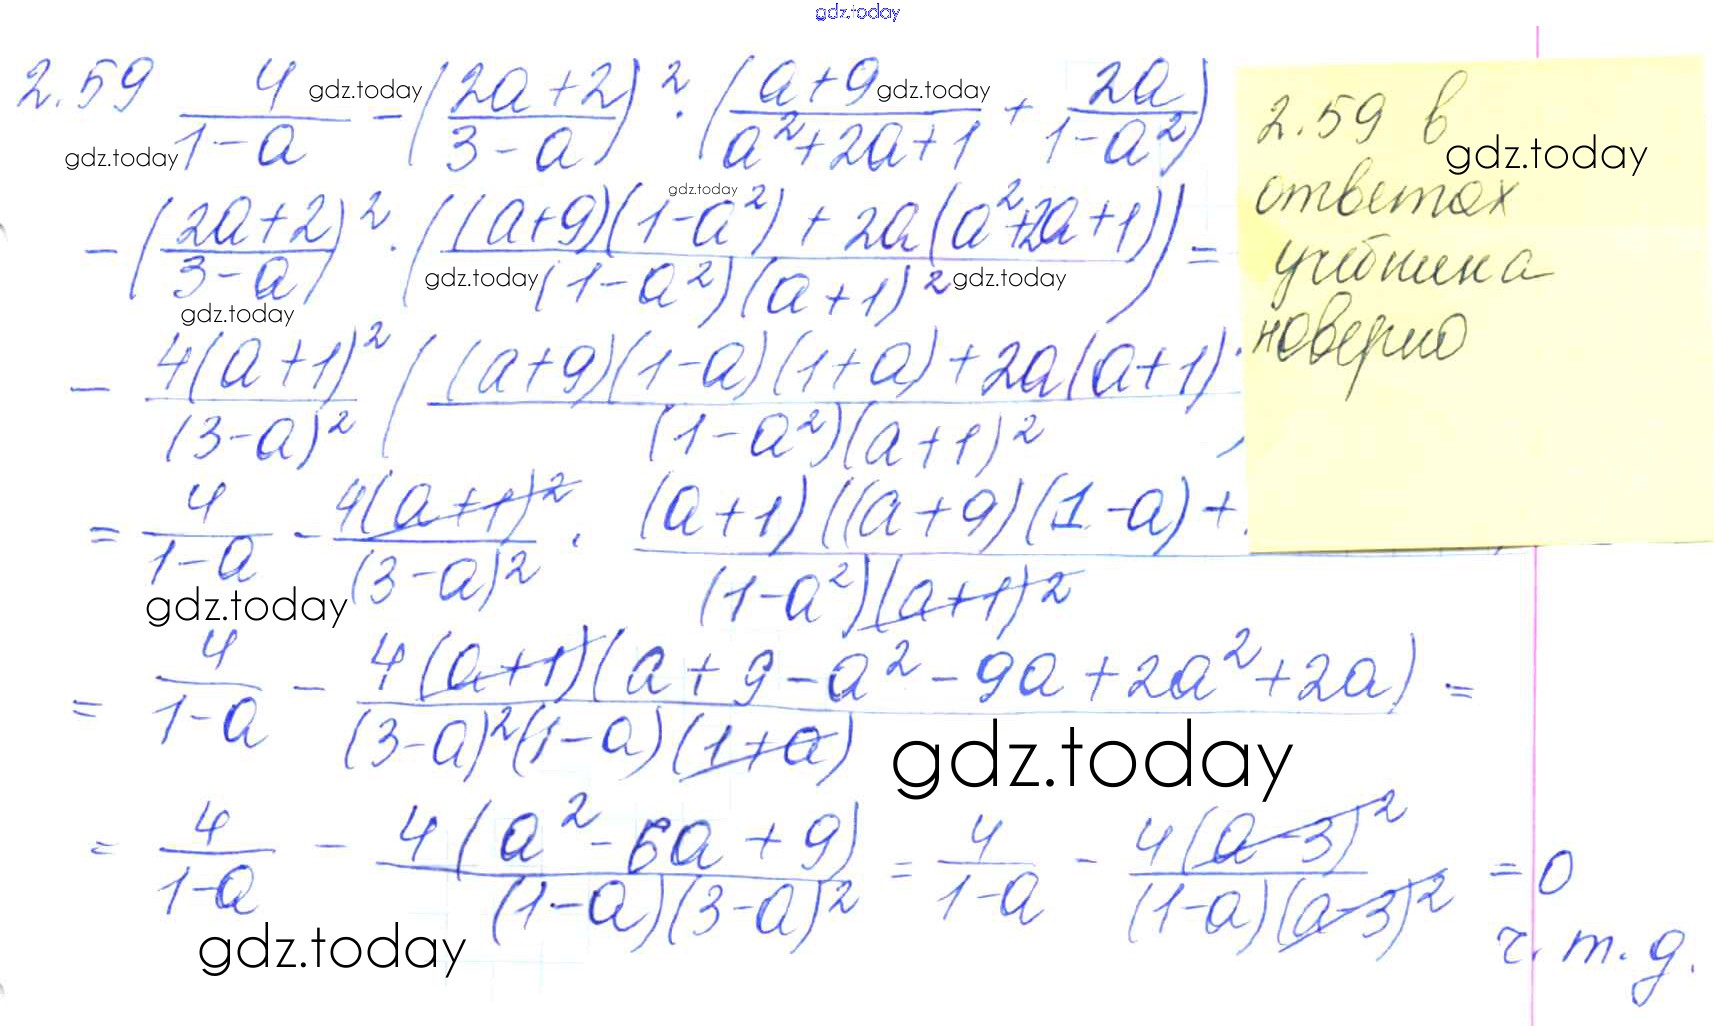 gdz.today
2.59 4/(1-a) - ((2a+2)/(3-a))² · ((a+9)/(a²+2a+1) + 2a/(1-a²))
gdz.today gdz.today gdz.today
- ((2a+2)/(3-a))² · (((a+9)(1-a²) + 2a(a²+2a+1))/((1-a²)(a+1)²)) =
gdz.today gdz.today gdz.today gdz.today
- 4(a+1)²/(3-a)² (((a+9)(1-a)(1+a) + 2a(a+1)
(1-a²)(a+1)²
= 4/(1-a) - 4(a+1)²/(3-a)² · (a+1)((a+9)(1-a)+
(1-a²)(a+1)²
gdz.today
= 4/(1-a) - 4(a+1)(a+9-a²-9a+2a²+2a)/((3-a)²(1-a)(1+a)) =
gdz.today
= 4/(1-a) - 4(a²-6a+9)/((1-a)(3-a)²) = 4/(1-a) - 4(a-3)²/((1-a)(a-3)²) = 0
gdz.today
ч.т.д.
2.59 в
gdz.today
ответах
учебника
неверно